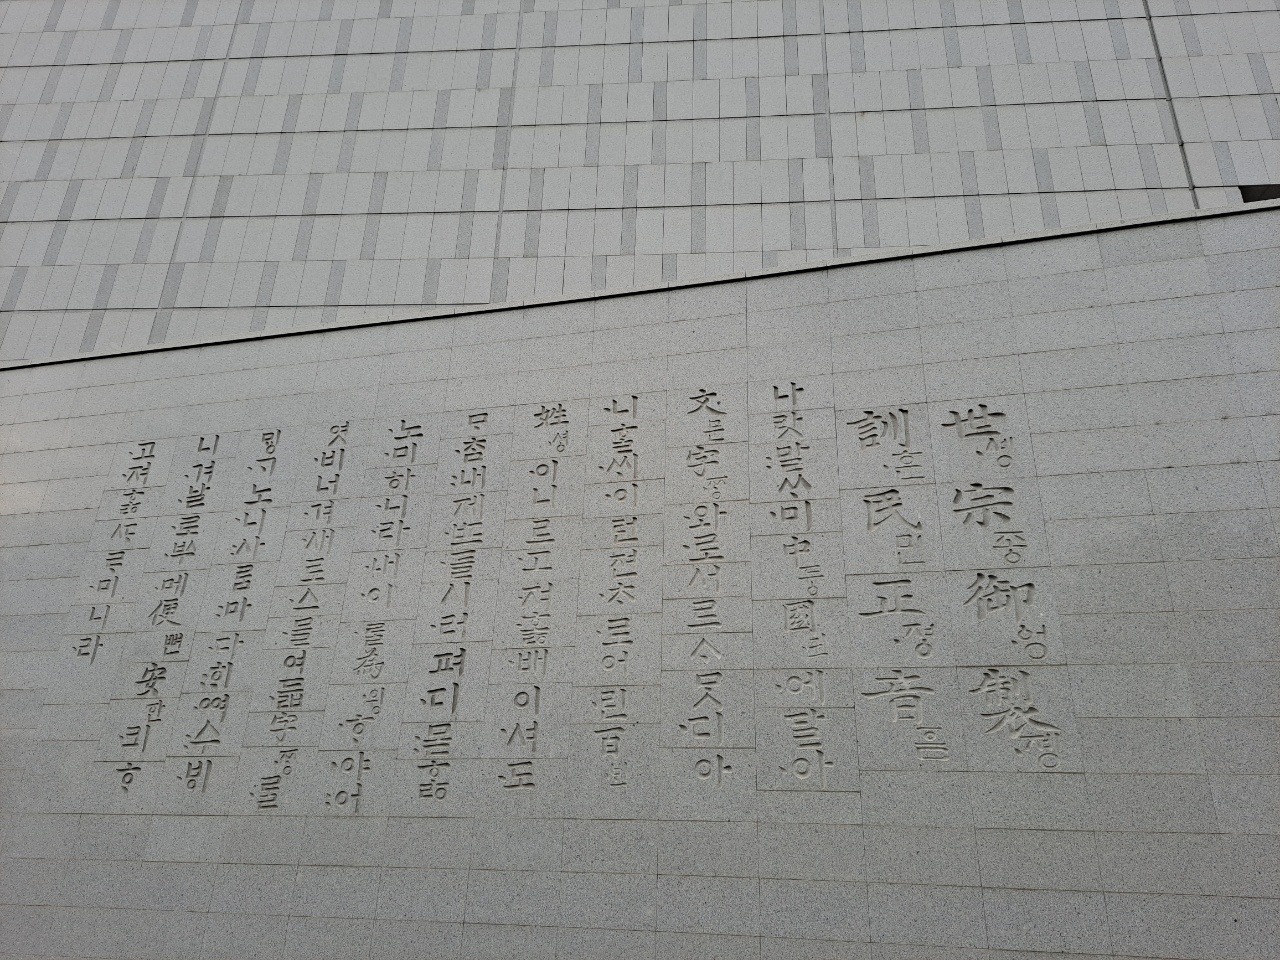 世솅宗종御엉製졩
訓훈民민正졍音흠
나랏말ᄊᆞ미中듕國귁에달아
文문字ᄍᆞᆼ와로서르ᄉᆞᄆᆞᆺ디아
니ᄒᆞᆯᄊᆡ이런젼ᄎᆞ로어린百ᄇᆡᆨ
姓셩이니르고져호ᇙ배이셔도
ᄆᆞᄎᆞᆷ내제ᄠᅳ들시러펴디몯ᄒᆞᇙ
노미하니라내이ᄅᆞᆯ爲윙ᄒᆞ야어
엿비너겨새로스믈여듧字ᄍᆞᆼᄅᆞᆯ
ᄆᆡᇰᄀᆞ노니사ᄅᆞᆷ마다ᄒᆡᅇᅧ수ᄫᅵ
니겨날로ᄡᅮ메便뼌安한킈ᄒᆞ
고져ᄒᆞᇙᄯᆞᄅᆞ미니라